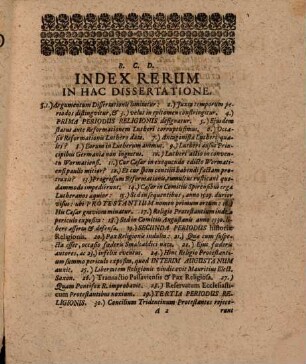 B. C. D.
INDEX RERUM
IN HAC DISSERTATIONE.
§. 1.) Argumentum Dissertationis limitatur: 2.) Juxta temporum pe-
riodos distinguitur, & 3.) velut in epitomen constringitur. 4.)
PRIMA PERIODUS RELIGIONIS designatur. 5.) Ejusdem
status ante Reformationem Lutheri corruptissimus. 6.) Occa-
sio Reformationis Luthero data. 7.) Antagonistæ Lutheri qua-
les? 8.) Eorum in Lutherum animus. 9.) Lutheri ausus Prin-
cipibus Germaniæ non ingratus. 10.) Lutheri actus in conven-
tu Wormatiensi. 11.) Cur Cæsar in exequendo edicto Worma-
tiensi paulò mitior? 12.) Et cur suam concilii habendi factam pro-
missionem? 13.) Progressum Reformationis, tumultus rusticani quo-
dammodo impediverunt. 14.) Cæsar in Comitiis Spirensibus erga
Lutheranos æquior: 15.) Sed in sequentibus, anno 1529. durior
visus: ubi PROTESTANTIUM nomen primum ortum: 16.)
Hic Cæsar gravissima minatur. 17.) Religio Protestantium indies
periculis exposita: 18.) Sed in Comitiis Augustanis anno 1530. li-
bere asserta & defensa. 19.) SECUNDA PERIODUS historiæ
Religionis. 20.) Pax Religionis indulta: 21.) Quæ cum suspe-
cta esset, occasio fœderis Smalcaldici nata. 22.) Ejus fœderis
autores, ac 23.) infelix eventus. 24.) Hinc Religio Protestanti-
um summo periculo exposita, quod INTERIM AUGUSTANUM
auxit. 25.) Libertatem Religionis vindicavit Mauritius Elect.
Saxon. 26.) Transactio Passaviensis & Pax Religiosa. 27.)
Quam Pontifex R. improbavit. 28.) Reservatum Ecclesiasti-
cum Protestantibus noxium. 29.) TERTIA PERIODUS RE-
LIGIONIS. 30.) Concilium Tridentinum Protestantes rejece-
a 2
runt